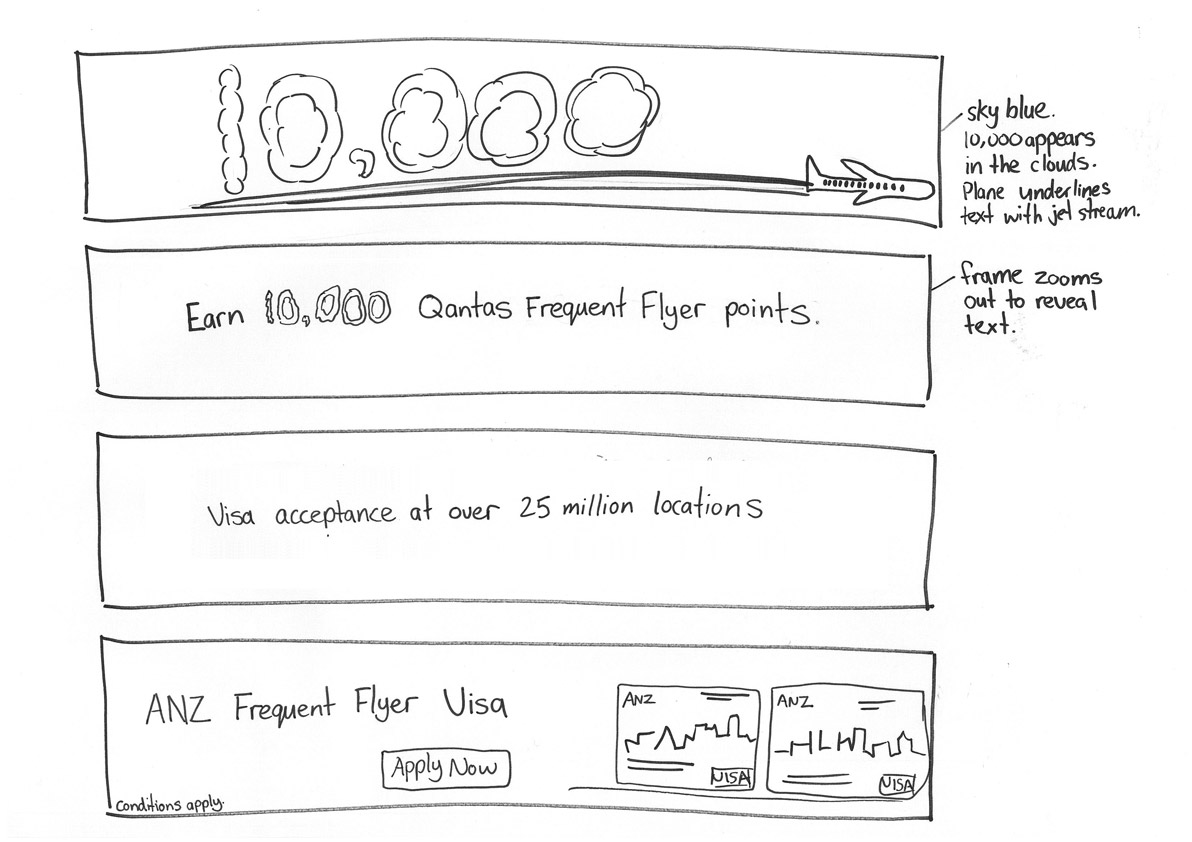 10,000
sky blue.
10,000 appears
in the clouds.
Plane underlines
text with jet stream.
Earn 10,000 Qantas Frequent Flyer points.
frame zooms
out to reveal
text.
Visa acceptance at over 25 million locations
ANZ Frequent Flyer Visa
Apply Now
conditions apply.
ANZ
VISA
ANZ
VISA